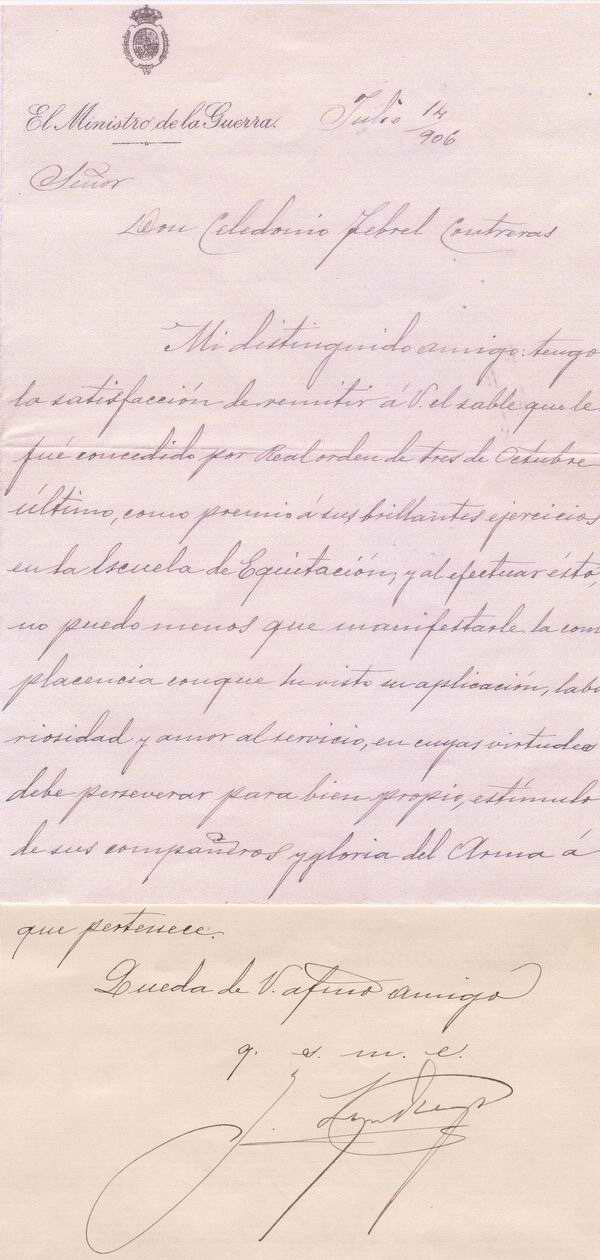 El Ministro de la Guerra.
Julio 14
906
Señor
Don Celedonio Febrel Contreras
Mi distinguido amigo: tengo
la satisfacción de remitir á V. el sable que le
fué concedido por Real orden de tres de Octubre
último, como premio á sus brillantes ejercicios
en la Escuela de Equitación; y al efectuar ésto,
no puedo menos que manifestarle la com
placencia con que he visto su aplicación, labo
riosidad y amor al servicio, en cuyas virtudes
debe perseverar para bien propio, estímulo
de sus compañeros y gloria del Arma á
que pertenece.
Queda de V. afmo amigo
q. s. m. e.